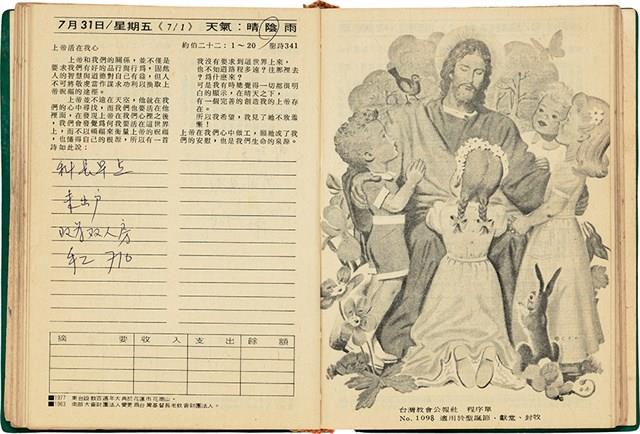 7月31日/星期五《7/1》 天氣：晴陰雨
上帝活在我心 約伯二十二：1～20 聖詩341
上帝和我們的關係，並不僅是
要求我們有好的品行與行爲，固然
人的智慧與道德對自己有益，但人
不可將敬虔當作謀求功利以換取上
帝祝福的途徑。
上帝並不遠在天空，他就在我
們的心中尋找，而我們也要活在他
裡面，在發現上帝在我們心裡之後
，我們會發覺爲何我活在這世界
上，而不以禍福來衡量上帝的祝福
，也懂得自己的根源，所以有一首
詩如此說：
我沒有要求到這世界上來，
也不知道路程多遠？往那裡去
？爲什麽來？
可是我有時總覺得一切都很明
白的顯示，在晴天之下，
有一個完善的創造我的上帝存
在。
所以我希望，我見了祂不致羞
慚！
上帝在我們心中做工，顯祂成了我
們的安慰，也是我們生命的泉源。
科長早上
未出戶
双人房
摘要 收入 支出 餘額
■1877 東台設教百週年大典於花蓮市花崗山。
■1963 南部大會財團法人變更爲台灣基督長老教會財團法人。
台灣教會公報社 程序單
No.1098 適用於聖誕節．獻堂．封牧